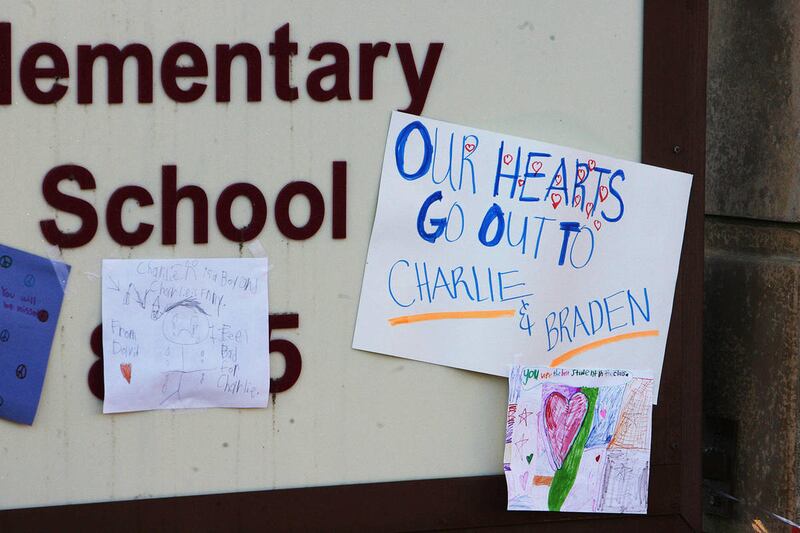 lementary
School
5
You will
be missed
Charlie is a Boy and
From
David
I Feel
Bad
For
Charlie.
OUR HEARTS
GO OUT TO
CHARLIE
&
BRADEN
You were the best student in the class